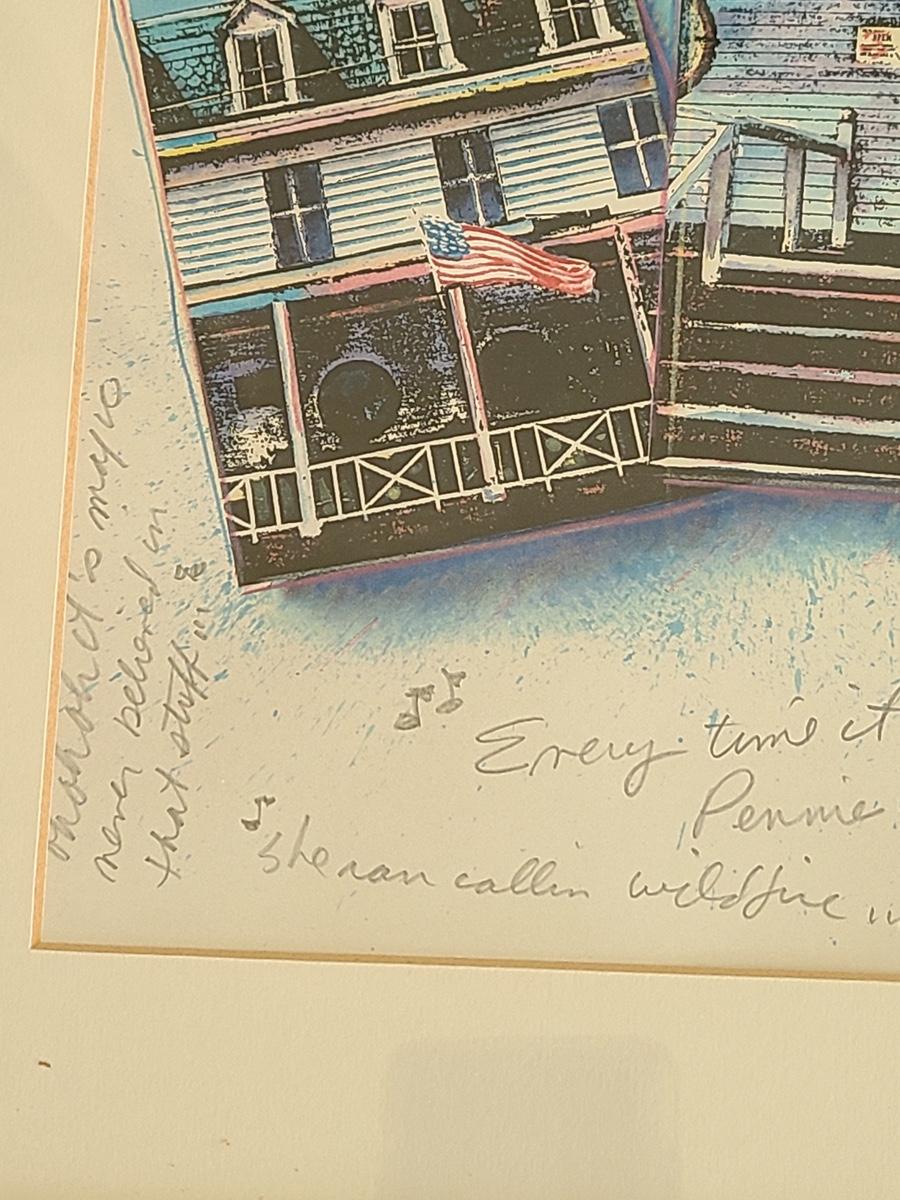 OPEN
oh oh oh it's mayic
never beheved in
that stuff "!
Every time it
Pennie
She ran callin wildfire ...